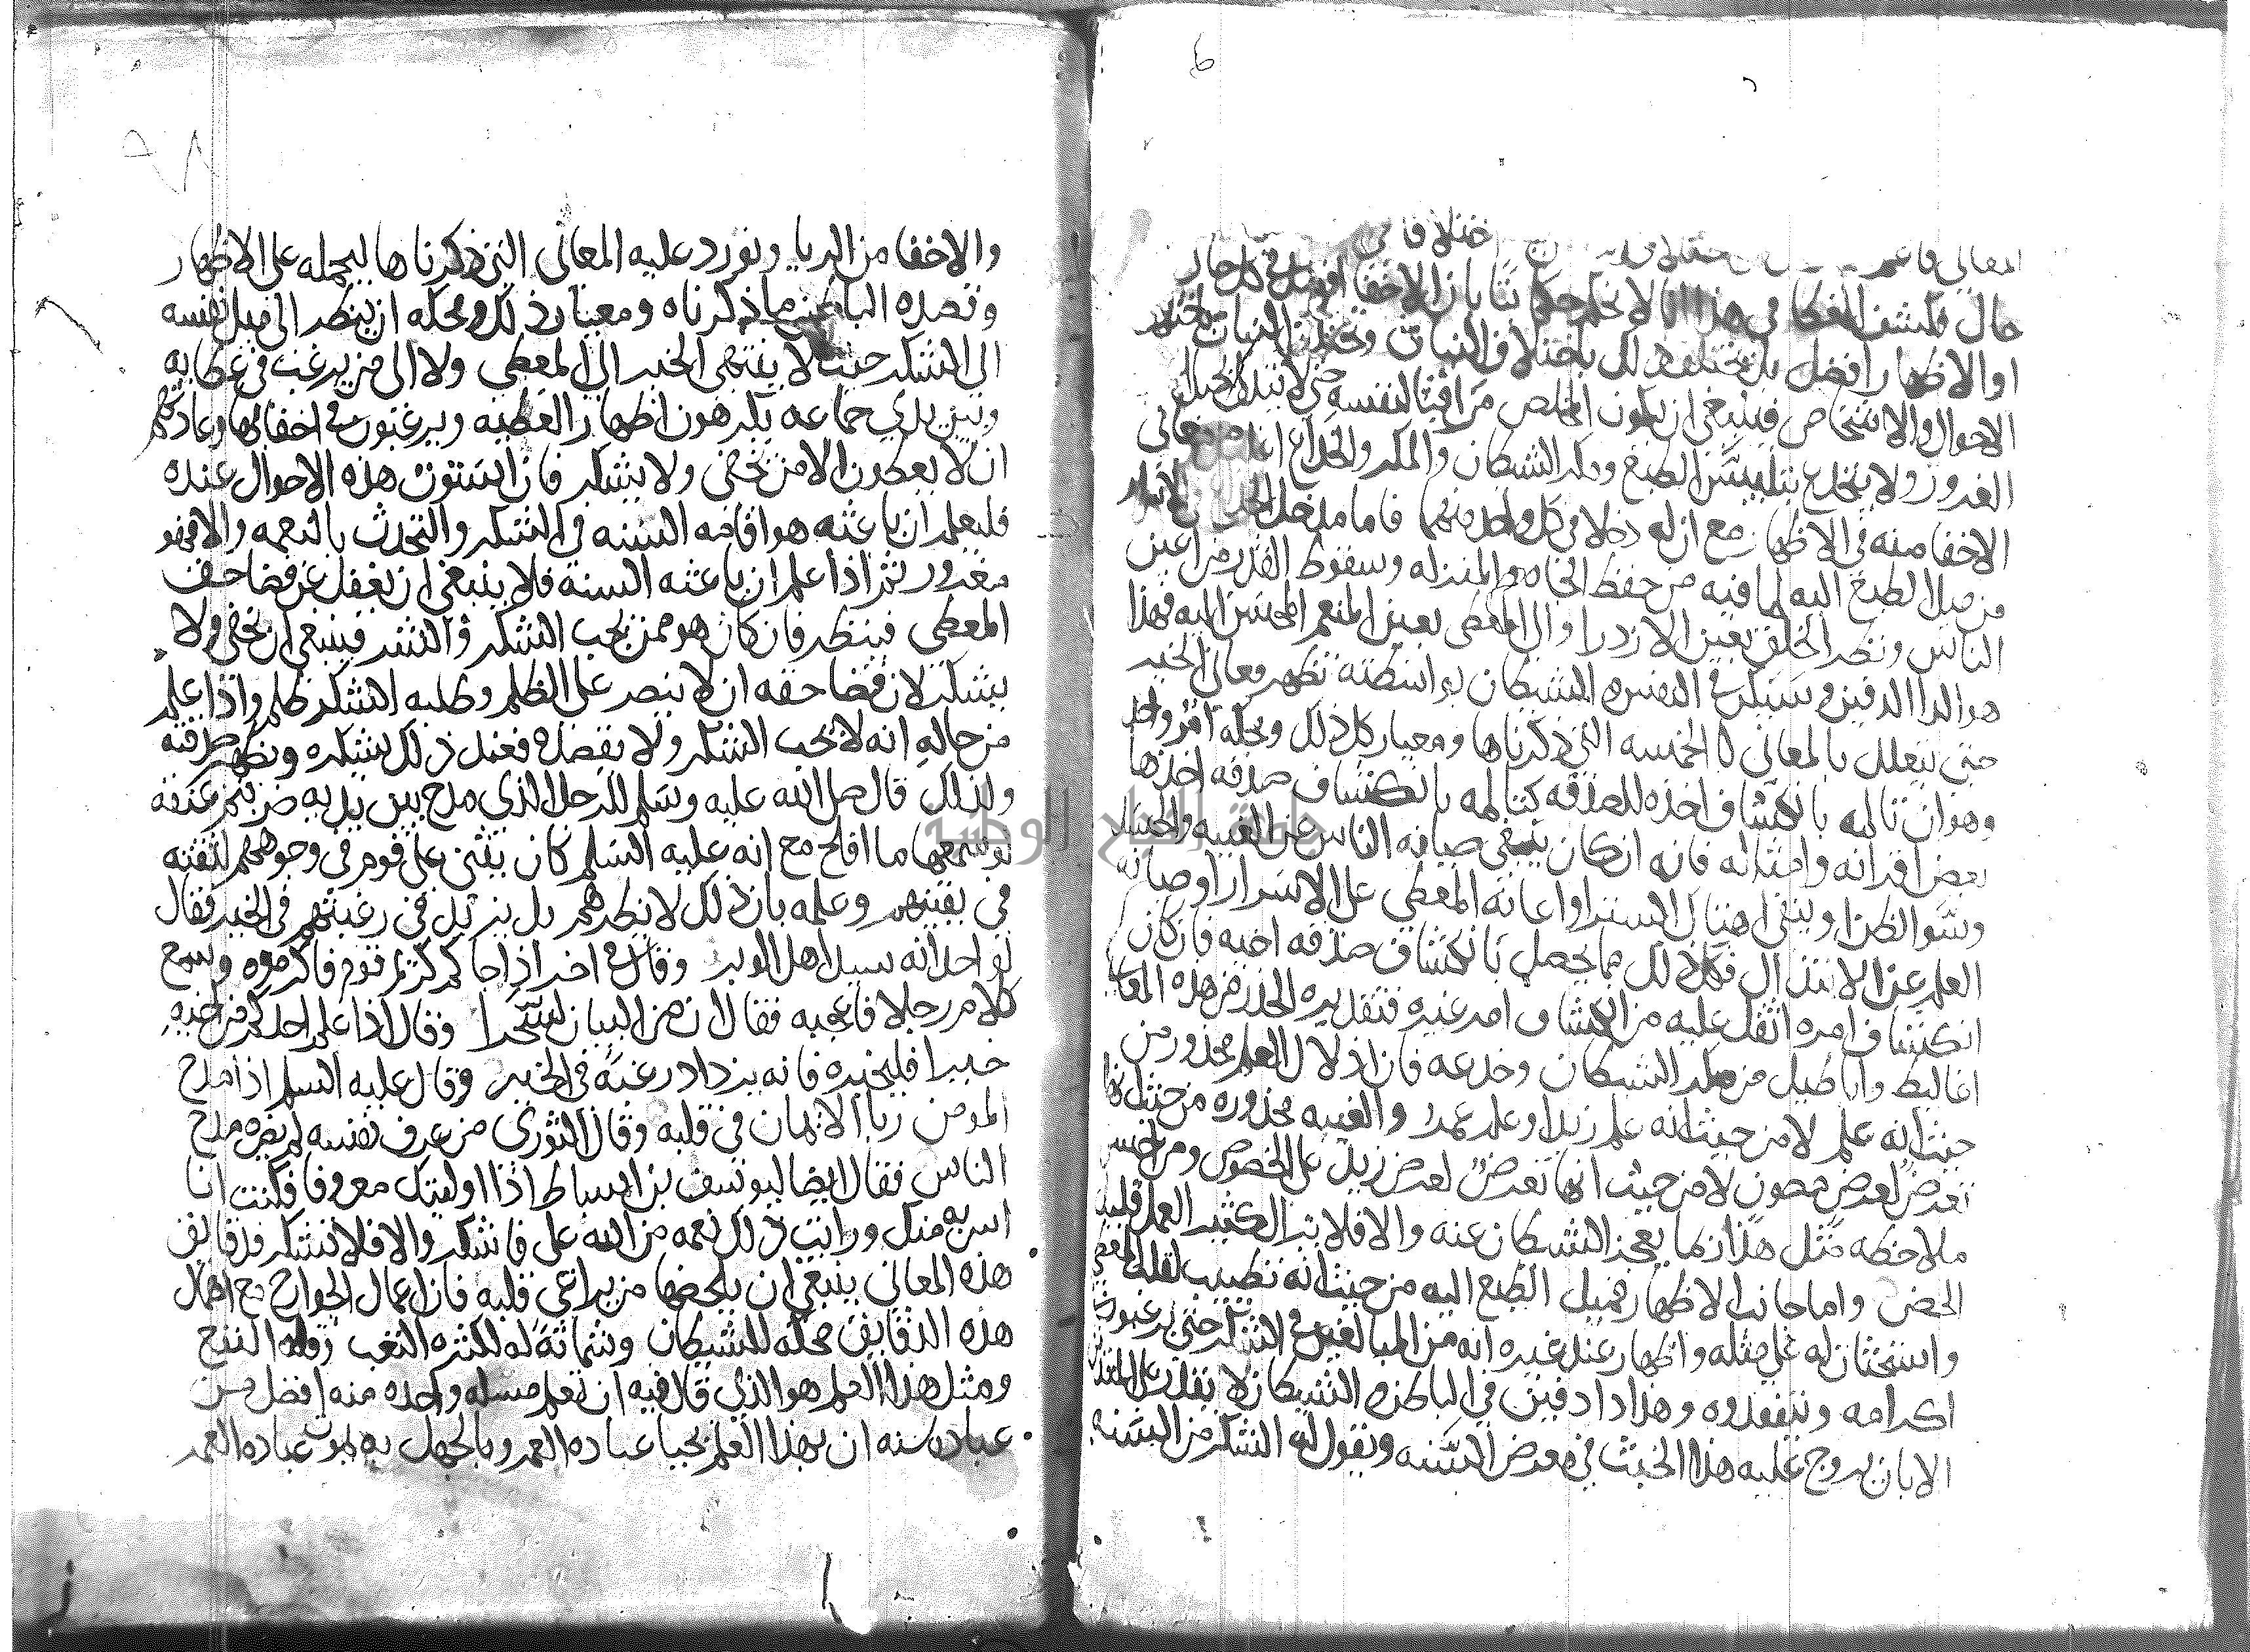 المعاني فاعلم
حال فكشف الغطا في هذا انا لا نحكم حكما بتا بان الاخفا افضل في كل حال
او الاظهار افضل بل يختلف ذلك باختلاف النيات وتختلف النيات باختلاف
الاحوال والاشخاص فينبغي ان يكون المخلص مراقبا لنفسه حتى لا يتدلى بحبل
الغرور ولا ينخدع بتلبيس الطبع ومكر الشيطان والمكر والخداع اغلب في معاني
الاخفا منه في الاظهار مع ان له دخلا في كل واحد منهما فاما مدخل الخداع في الاسرار
من ميل الطبع اليه لما فيه من حفظ الجاه والمنزله وسقوط القدر من اعين
الناس ونظر الخلق بعين الازدرا والى المعطي بعين المنعم المحسن اليه فهذا
هو الدا الدفين ويستكن في النفس والشيطان بواسطته تظهر معاني الخير
حتى يتعلل بالمعاني الخمسه التي ذكرناها ومعيار كل ذلك ومحكه امر واحد
وهو ان تالمه بانكشاف اخذه للصدقه كتالمه بانكشاف صدقه اخذها
بعض اقرانه وامثاله فانه ان كان ينبغي صيانه الناس عن الغيبه والحسد
وسوا الظن او ينبغي اهتبال الستر او اعانه المعطي على الاسرار او صيانه
العلم عن الابتذال فكل ذلك مما يحصل بانكشاف صدقه اخيه فان كان
انكشاف امره اثقل عليه من انكشاف امر غيره فتقديره الحذر من هذه المعاني
اغاليط واباطيل من مكر الشيطان وخدعه فان اذلال العلم محذور من
حيث انه علم لا من حيث انه علم زيد او علم عمرو والغيبه محذوره من حيث انها
تعرض لعرض مصون لا من حيث انها تعرض لعرض زيد على الخصوص ومن احسن
ملاحظه مثل هذا ربما يعجز الشيطان عنه والا فلا يزال كثير العمل قليل
الحض واما جانب الاظهار فميل الطبع اليه من حيث انه تطييب لقلب المعطي
واستحثاث له على مثله واظهار عند غيره انه من المبالغين في الشكر حتى يرغبون في
اكرامه وتتفقدوه وهذا دا دفين في الباطن والشيطان لا يقدر على المتدين
الا بان يروج عليه هذا الخبث في معرض السنه ويقول له الشكر من السنه
والاخفا من الريا ونورد عليه المعاني التي ذكرناها ليحمله على الاظهار
وقصده الباطن ما ذكرناه ومعيار ذلك ومحكه ان ينظر الى ميل نفسه
الى الشكر حيث لا ينتهي الخبر الى المعطي ولا الى من يرغب في عطايه
وبين يدي جماعه يكرهون اظهار العطيه ويرغبون في اخفائها وعادتهم
ان لا يعطون الا من يخفي ولا يشكر فان استوت هذه الاحوال عنده
فليعلم ان باعثه هو اقامه السنه في الشكر والتحدث بالنعمه والا فهو
مغرور ثم اذا علم ان باعثه السنة فلا ينبغي ان يغفل عن قضا حق
المعطي فينظر فان كان هو ممن يحب الشكر والنشر فينبغي ان يخفي ولا
يشكر لان قضا حقه ان لا ينصر على الظلم وطلبه الشكر ظلم واذا علم
من حاله انه لا يحب الشكر ولا يقصده فعند ذلك يشكره ويظهر صدقته
ولذلك قال صلى الله عليه وسلم للرجل الذي مدح بين يديه ضربتم عنقه
لو سمعها ما افلح مع انه عليه السلم كان يثني على قوم في وجوههم لثقته
في يقينهم وعلمه بان ذلك لا يضرهم بل يزيد في رغبتهم في الخير فقال
لواحد انه سيد اهل الوبر وقال في اخر اذا جاكم كريم قوم فاكرموه وسمع
كلام رجلا فاعجبه فقال ان من البيان لسحرا وقال اذا علم احدكم من اخيه
خيرا فليخبره فانه يزداد رغبة في الخير وقال عليه السلم اذا مدح
المومن ربا الايمان في قلبه وقال الثوري من عرف نفسه لم يضره مدح
الناس فقال ايضا ليوسف بن اسباط اذا اوليتك معروفا فكنت انا
اسر به منك ورايت ذلك نعمه من الله على فاشكر والا فلا تشكر فدقائق
هذه المعاني ينبغي ان يلحضها من يراعي قلبه فان اعمال الجوارح مع اهمال
هذه الدقايق محكه للشيطان وشماتة له لكثره التعب وقله النفع
ومثل هذا العلم هو الذي قال فيه ان تعلم مسله واحده منه افضل من
عباده سنه ان بهذا العلم يحيا عباده العمر وبالجهل به تموت عباده العمر